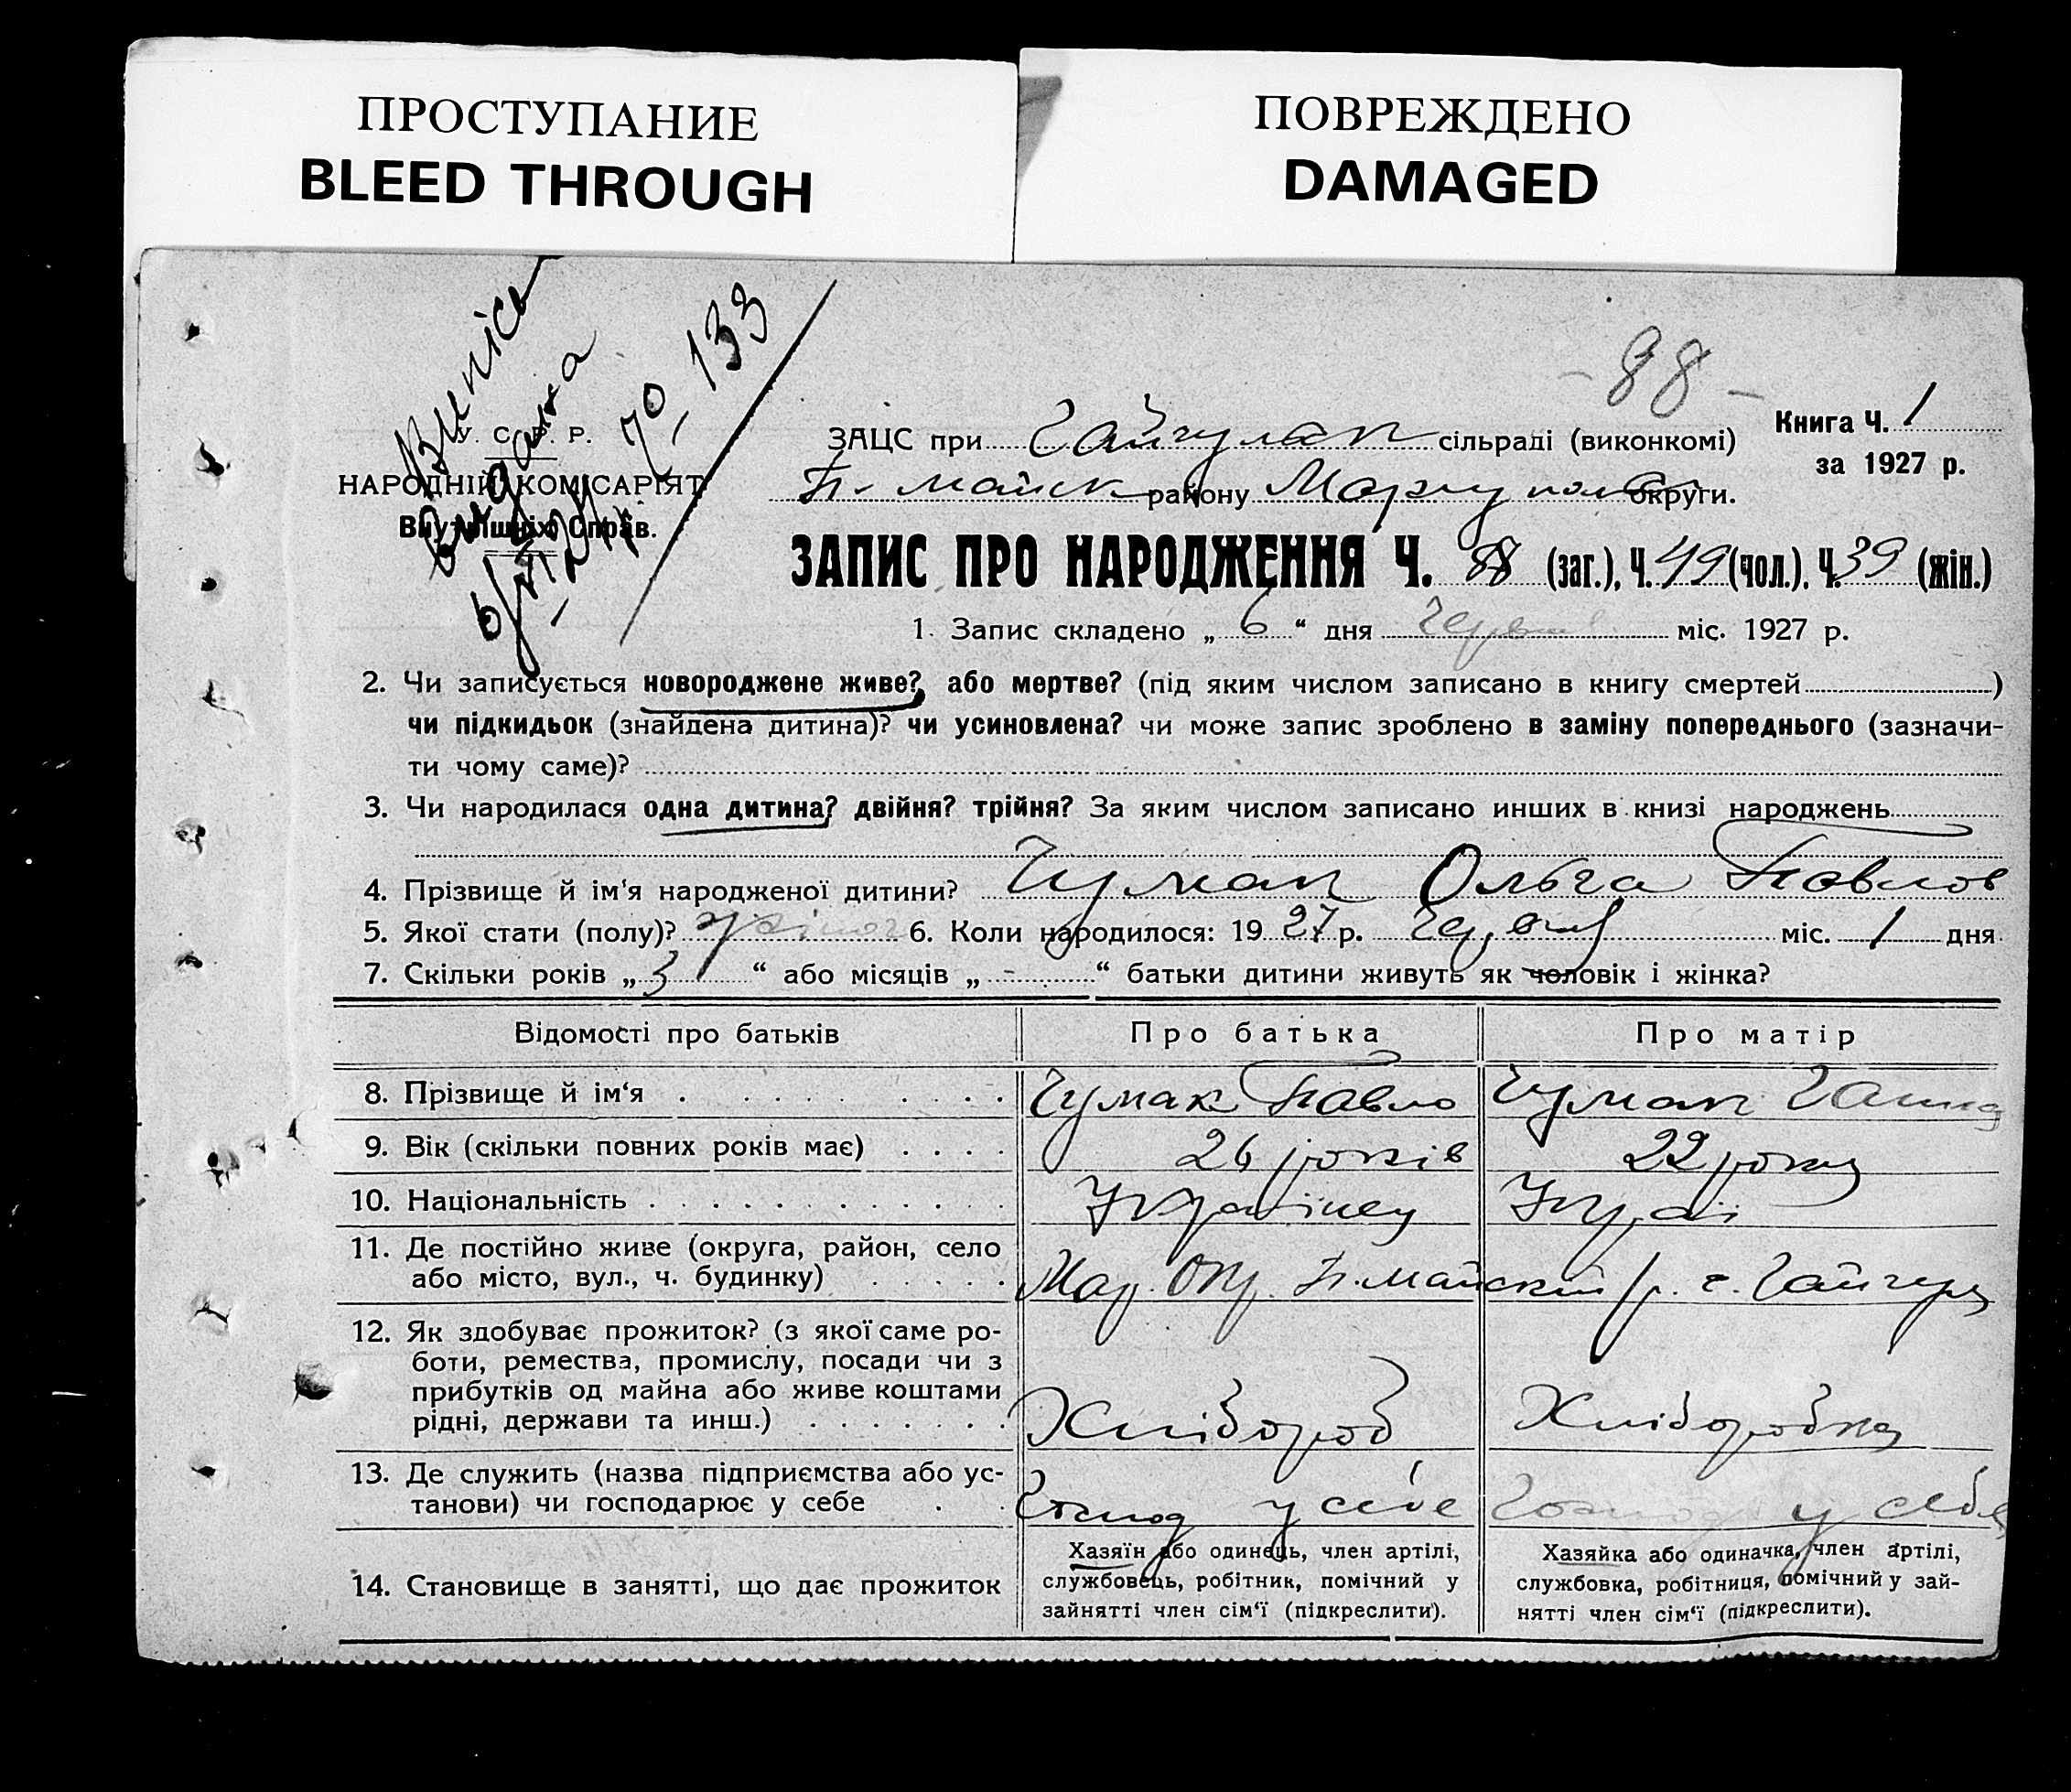 ПРОСТУПАНИЕ
BLEED THROUGH
ПОВРЕЖДЕНО
DAMAGED
- 88 -
Випісь
видана
70 133
У. С. Р. Р.
НАРОДНІЙ КОМІСАРІЯТ
Внутрішніх Справ.
ЗАЦС при Гайчулак сільраді (виконкомі)
П.-майск району Маріупольс округи.
Книга Ч. 1
за 1927 р.
ЗАПИС ПРО НАРОДЖЕННЯ Ч. 88 (заг.), Ч. 49 (чол.), Ч. 39 (жін.)
1. Запис складено „ 6 “ дня Червня міс. 1927 р.
2. Чи записується новороджене живе? або мертве? (під яким числом записано в книгу смертей )
чи підкидьок (знайдена дитина)? чи усиновлена? чи може запис зроблено в заміну попереднього (зазначи-
ти чому саме)?
3. Чи народилася одна дитина? двійня? трійня? За яким числом записано инших в книзі народжень
4. Прізвище й ім'я народженої дитини? Чумак Ольга Павлов
5. Якої стати (полу)? жіноч 6. Коли народилося: 1927 р. Червня міс. 1 дня
7. Скільки років „ 3 “ або місяців „ - “ батьки дитини живуть як чоловік і жінка?
Відомості про батьків Про батька Про матір
8. Прізвище й ім‘я Чумак Павло Чумак Ганна
9. Вік (скільки повних років має) 26 років 22 роки
10. Національність Українец Украї
11. Де постійно живе (округа, район, село
або місто, вул., ч. будинку) Мар. Окр. П.майский р. с. Гайчур
12. Як здобуває прожиток? (з якої саме ро-
боти, ремества, промислу, посади чи з
прибутків од майна або живе коштами
рідні, держави та инш.) Хлібороб Хліборобка
13. Де служить (назва підприємства або ус-
танови) чи господарює у себе Господ у себе Господ у себе
14. Становище в занятті, що дає прожиток
Хазяїн або одинець, член артілі,
службовець, робітник, помічний у
зайнятті член сім‘ї (підкреслити).
Хазяйка або одиначка, член артілі,
службовка, робітниця, помічний у зай-
нятті член сім‘ї (підкреслити).